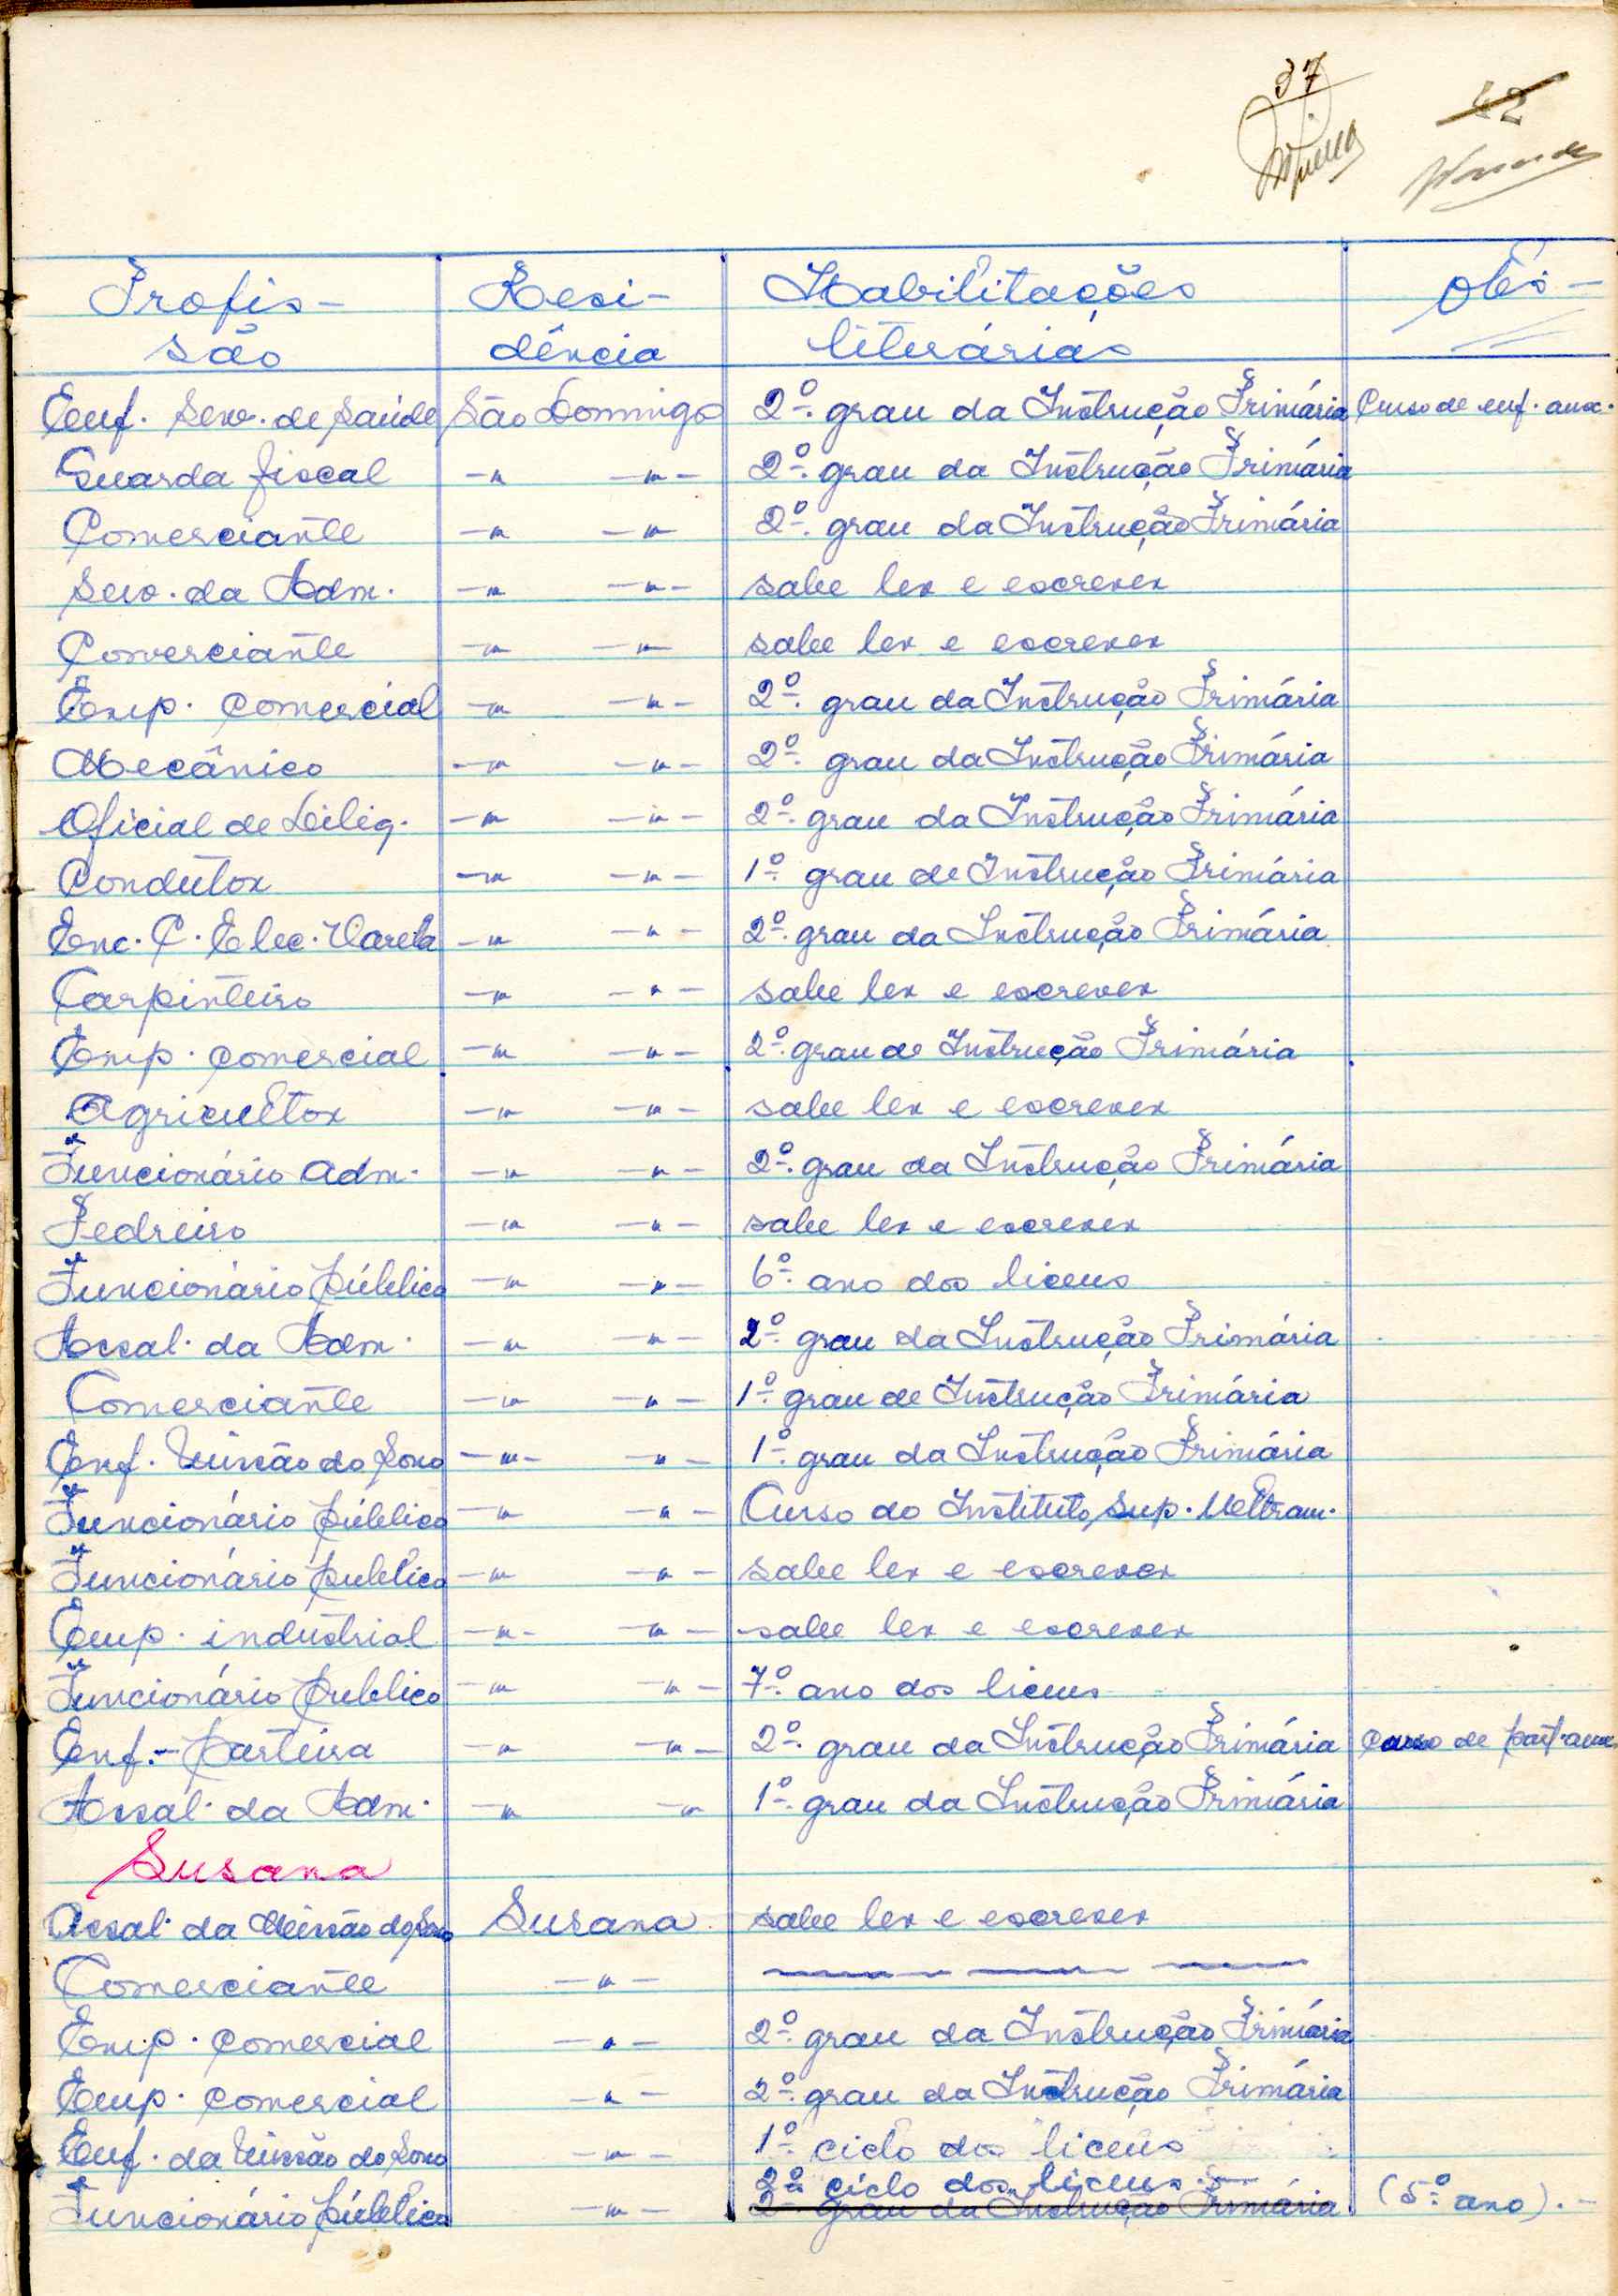 37
42
Profis- Resi- Habilitações Obs-
são dência literárias
Enf. Serv. de Saúde São Domingo 2º. grau da Instrução Primária Curso de enf. aux.
Guarda fiscal -"- -"- 2º. grau da Instrução Primária
Comerciante -"- -"- 2º. grau da Instrução Primária
Serv. da Adm. -"- -"- sabe ler e escrever
Comerciante -"- -"- sabe ler e escrever
Emp. comercial -"- -"- 2º. grau da Instrução Primária
Mecânico -"- -"- 2º. grau da Instrução Primária
Oficial de Dilig. -"- -"- 2º. grau da Instrução Primária
Condutor -"- -"- 1º. grau de Instrução Primária
Enc. C. Elec. Varela -"- -"- 2º. grau da Instrução Primária
Carpinteiro -"- -"- sabe ler e escrever
Emp. comercial -"- -"- 2º. grau de Instrução Primária
Agricultor -"- -"- sabe ler e escrever
Funcionário Adm. -"- -"- 2º. grau da Instrução Primária
Pedreiro -"- -"- sabe ler e escrever
Funcionário público -"- -"- 6º. ano dos liceus
Assal. da Adm. -"- -"- 2º. grau da Instrução Primária
Comerciante -"- -"- 1º. grau de Instrução Primária
Enf. Missão do Sono -"- -"- 1º. grau da Instrução Primária
Funcionário público -"- -"- Curso do Instituto Sup. Ultram.
Funcionário público -"- -"- sabe ler e escrever
Emp. industrial -"- -"- sabe ler e escrever
Funcionário público -"- -"- 7º. ano dos liceus
Enf.- parteira -"- -"- 2º. grau da Instrução Primária Curso de part. aux.
Assal. da Adm. -"- -"- 1º. grau da Instrução Primária
Susana
Assal. da Missão do Sono Susana sabe ler e escrever
Comerciante -"- ——— ——— ———
Emp. comercial -"- 2º. grau da Instrução Primária
Emp. comercial -"- 2º. grau da Instrução Primária
Enf. da Missão do Sono -"- 1º. ciclo dos liceus
2º ciclo dos liceus.-
Funcionário público -"- 2º. grau da Instrução Primária (5º. ano).-